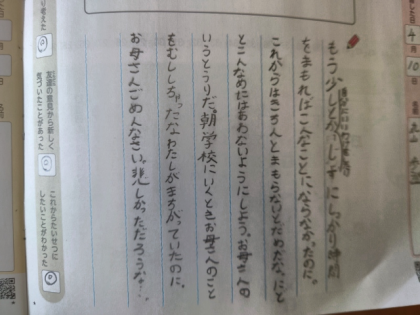 もう少しとがしずにしっかり時間
をまもればこんなことにならなかったのに。
これからはきちんとまもらないとだめだな。にど
とこんなめにはあわないようにしよう。お母さんの
いうとうりだ。朝学校にいくときお母さんのこと
もむししちゃったな わたしがまちがっていたのに。
お母さんごめんなさい。悲しかっただろうな…。
友達の意見から新しく
気づいたことがあった
これからたいせつに
したいことがわかった
り考えた
4
月
10